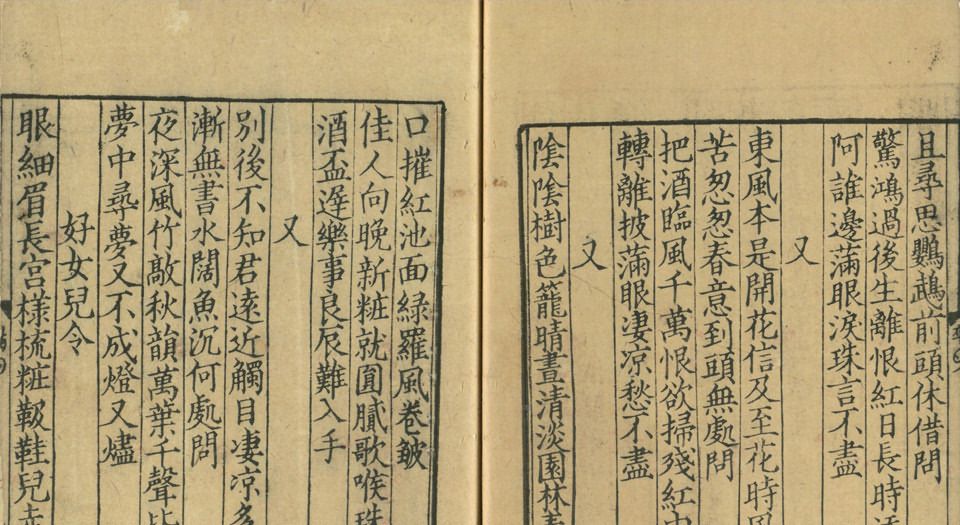 且尋思鸚鵡前頭休借問
驚鴻過後生離恨紅日長時
阿誰邊滿眼淚珠言不盡
又
東風本是開花信及至花時
苦怱怱春意到頭無處問
把酒臨風千萬恨欲掃殘紅
轉離披滿眼凄凉愁不盡
又
陰陰樹色籠晴晝清淡園林春
口摧紅池面綠羅風卷皺
佳人向晚新粧就圓膩歌喉珠
酒盃遟樂事良辰難入手
又
別後不知君遠近觸目凄凉多
漸無書水闊魚沉何處問
夜深風竹敲秋韻萬葉千聲皆
夢中尋夢又不成燈又燼
好女兒令
眼細眉長宮樣梳粧靸鞋兒走